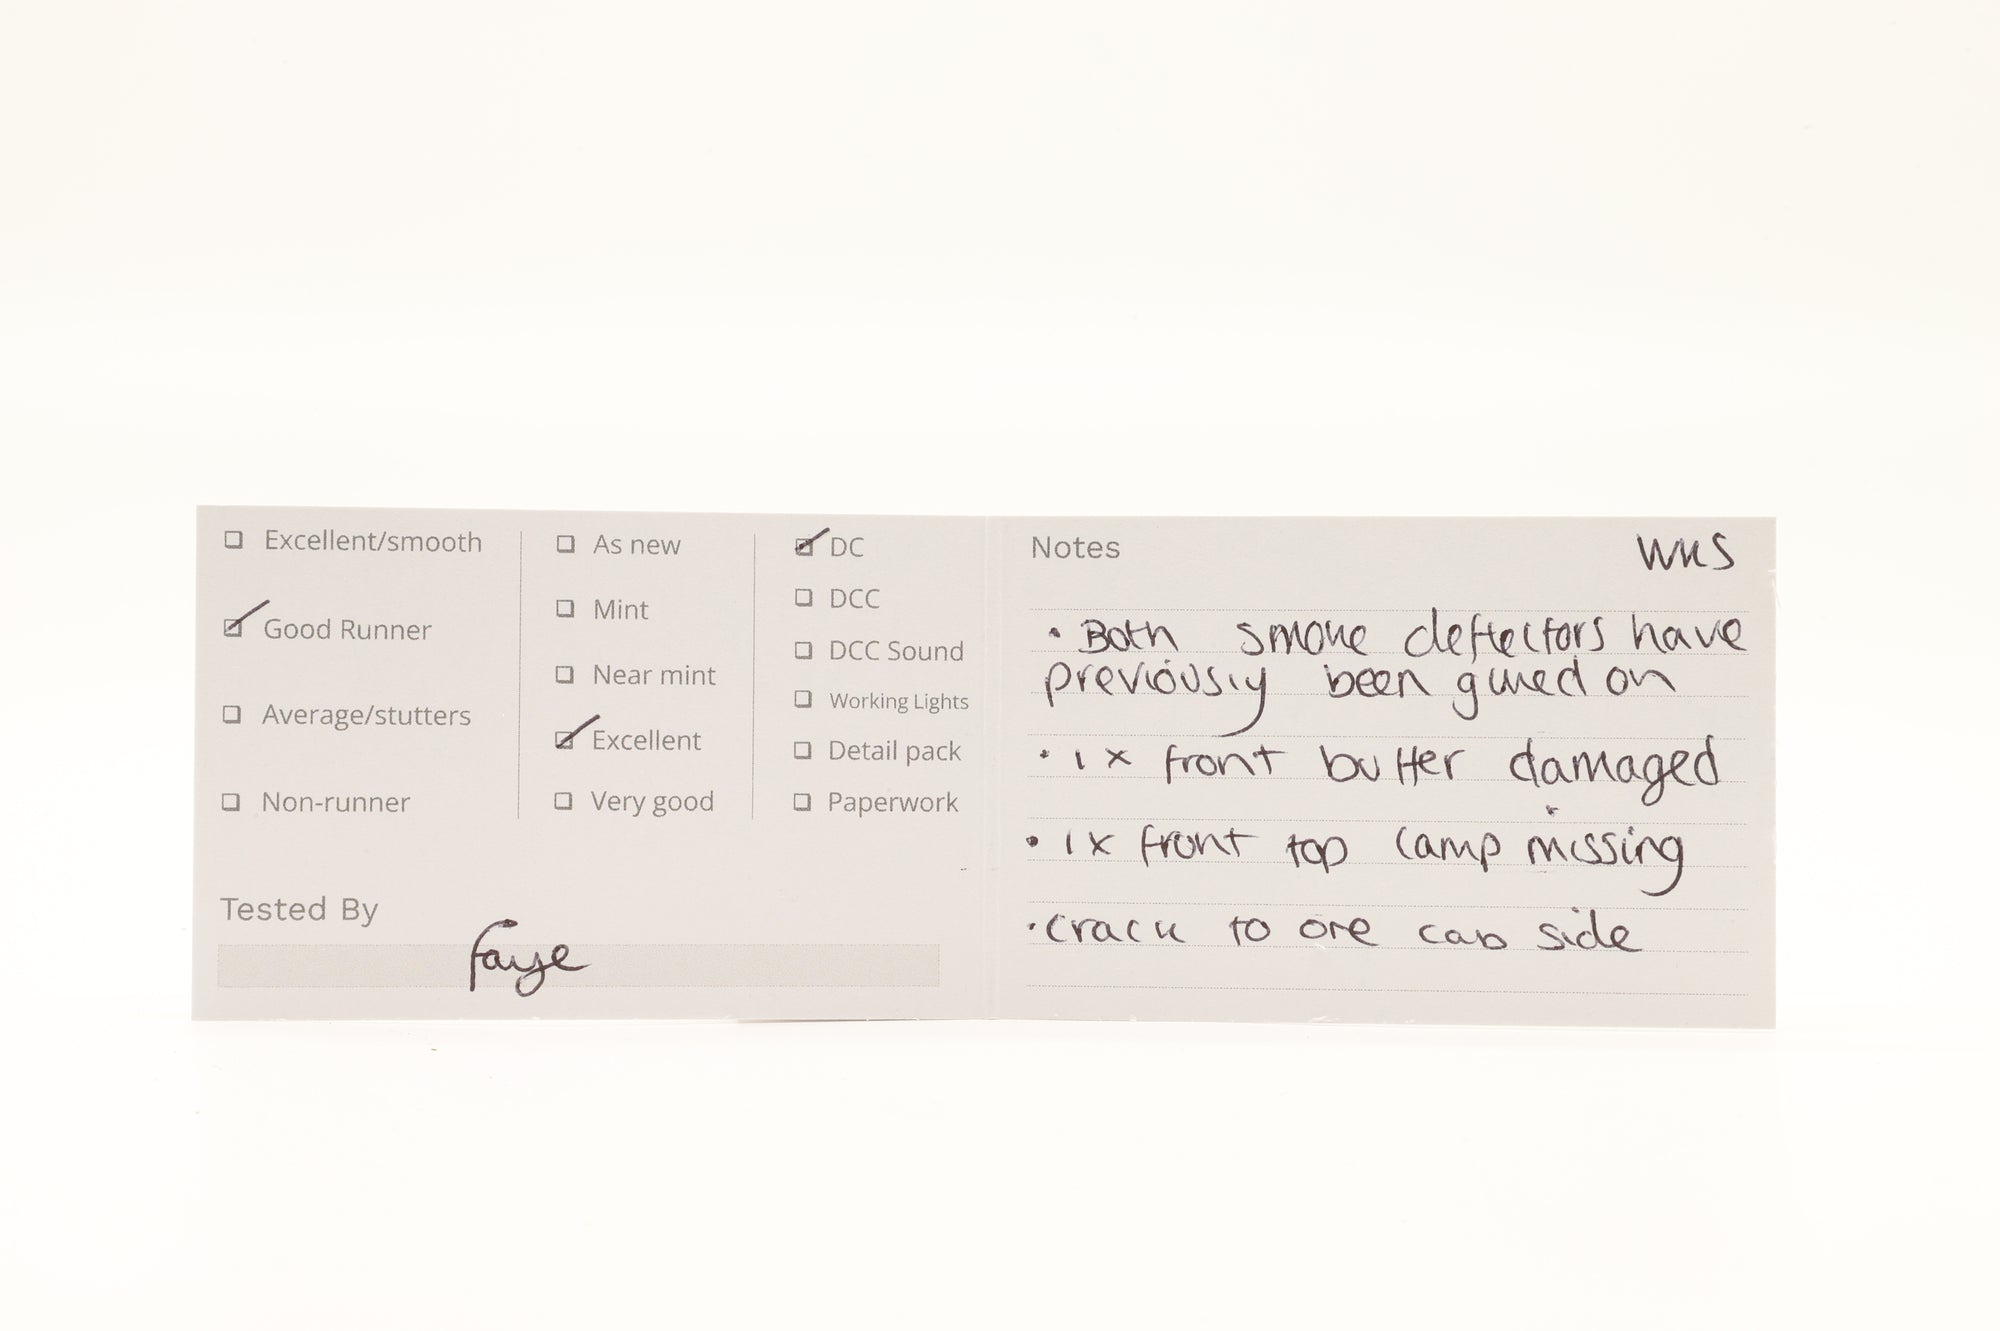 Excellent/smooth
Good Runner
Average/stutters
Non-runner
As new
Mint
Near mint
Excellent
Very good
DC
DCC
DCC Sound
Working Lights
Detail pack
Paperwork
Tested By
Faye
Notes
WKS
• Both smoke deflectors have
previously been glued on
• 1x front buffer damaged
• 1x front top lamp missing
• crack to one cab side